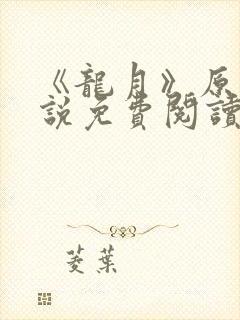 《龍月》原
說免費閱讀
菱葉